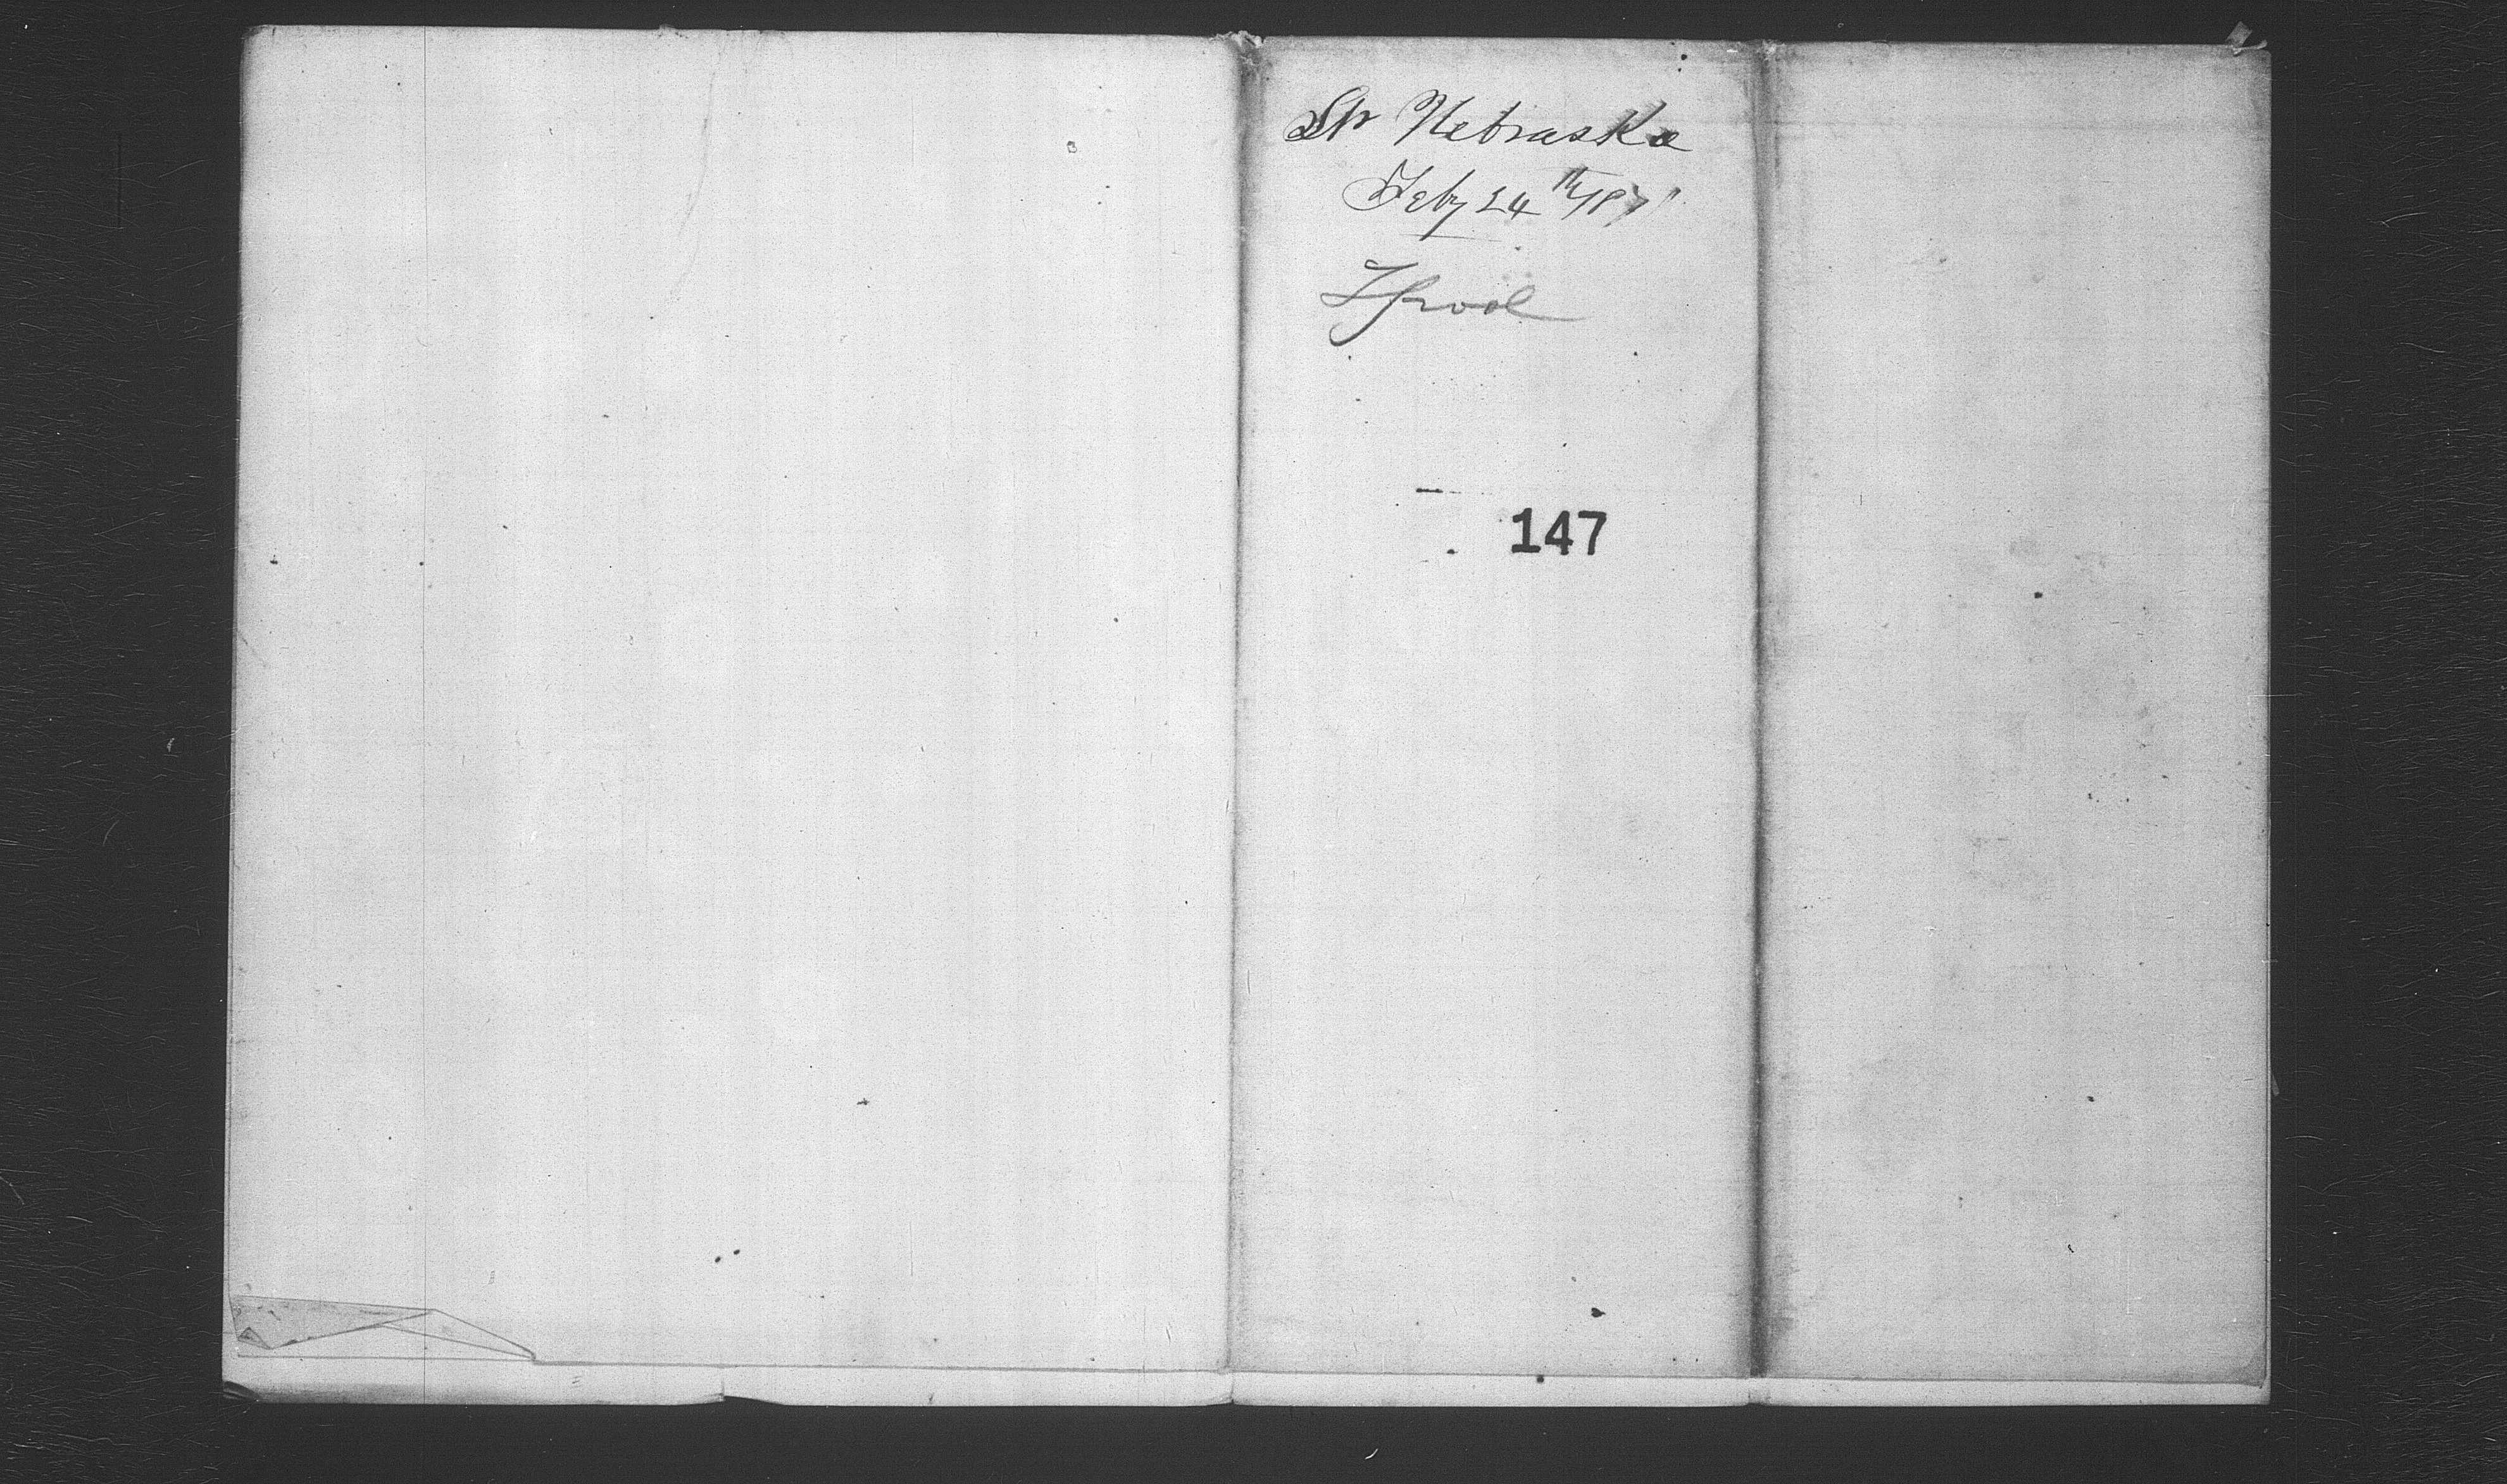 Str Nebraska
Feby 24th/71
L'pool
147